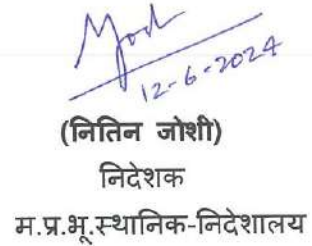 12-6-2024
(नितिन जोशी)
निदेशक
म.प्र.भू.स्थानिक-निदेशालय